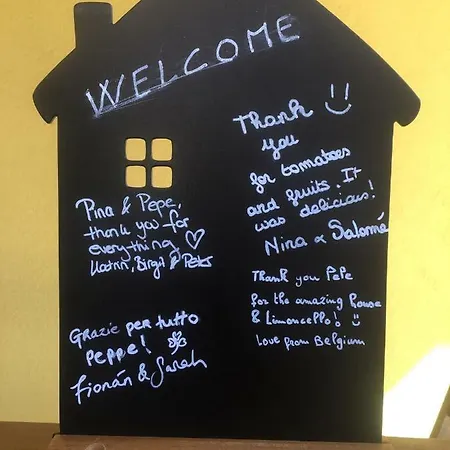 WELCOME
Pina & Pepe,
thank you for
everything ♡
Katrin, Birgit &
Grazie per tutto
Peppe!
Fionán & Sarah
Thank :)
you
for tomatoes
and fruits. It
was delicious!
Nina & Salomé
Thank you Pepe
for the amazing house
& Limoncello! :)
Love from Belgium